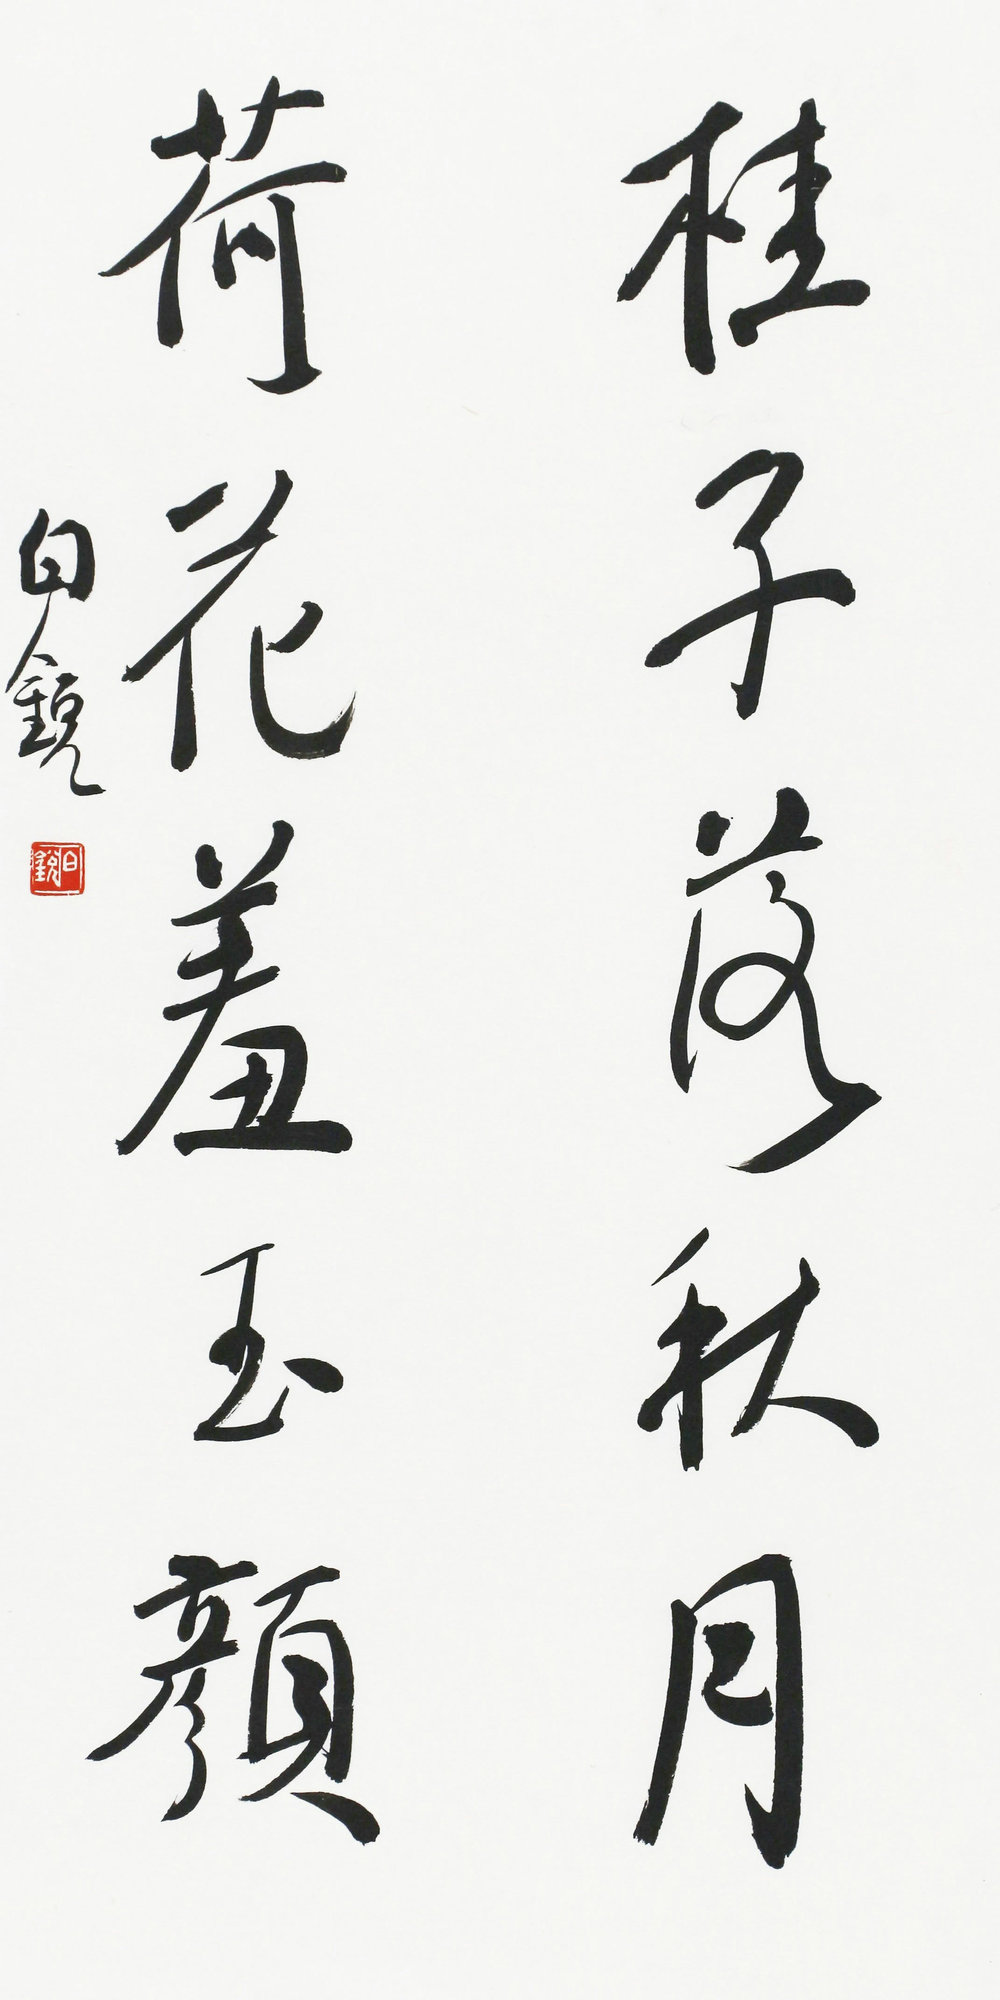 桂子落秋月
荷花羞玉顏
白銳
白銳